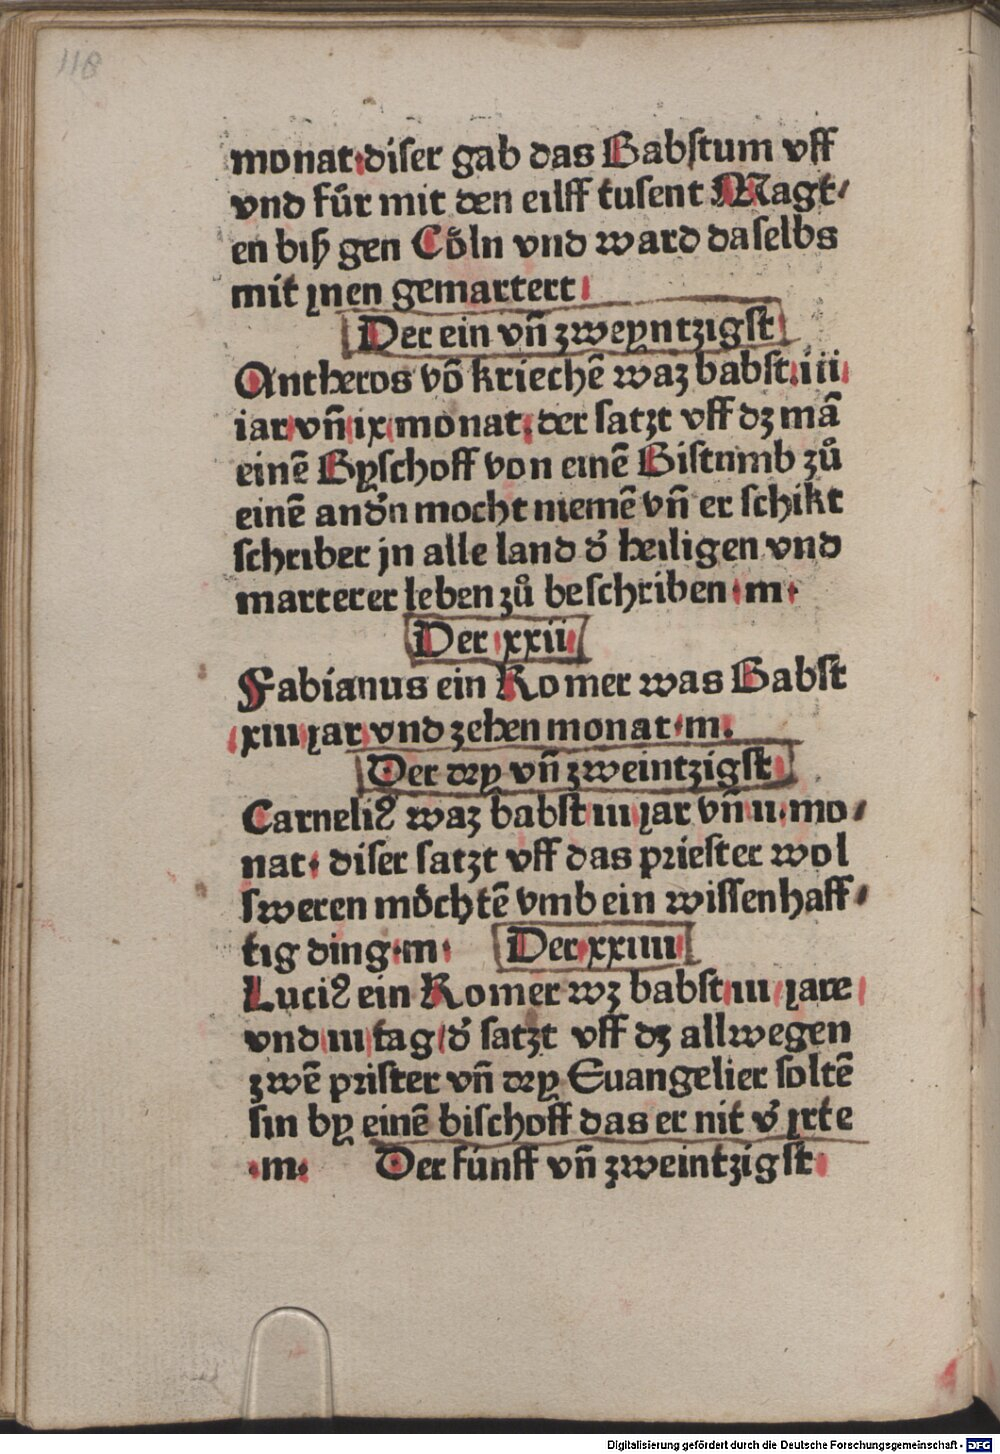 118
monat·diser gab das Babstum vff
vnd fuͦr mit den eilff tusent Magt⸗
en biß gen Coͤln vnd ward daselbs
mit ynen gemartert
Der ein vn̄ zweyntzigst
Antheros vō kriechē waz babst.iii
iar vn̄ ix monat. der satzt vff dz mā
einē Byschoff von einē Bistumb zuͦ
einē andʼn mocht niemē vn̄ er schikt
schriber jn alle land dʼ heiligen vnd
marterer leben zuͦ beschriben·m·
Der xxii
Fabianus ein Romer was Babst
xiii yar vnd zehen monat·m.
Der dry vn̄ zweintzigst
Carneliꝰ waz babst iii yar vn̄ ii.mo⸗
nat· diser satzt vff das priester wol
sweren moͤchtē vmb ein wissenhaff⸗
tig ding·m· Der xxiiii
Luciꝰ ein Romer wz babst iii yare
vnd iii tag dʼ satzt vff dz allwegen
zwē prister vn̄ dry Euangelier soltē
sin by einē bischoff das er nit vʼ yrte
·m· Der fünff vn̄ zweintzigst
Digitalisierung gefördert durch die Deutsche Forschungsgemeinschaft - DFG